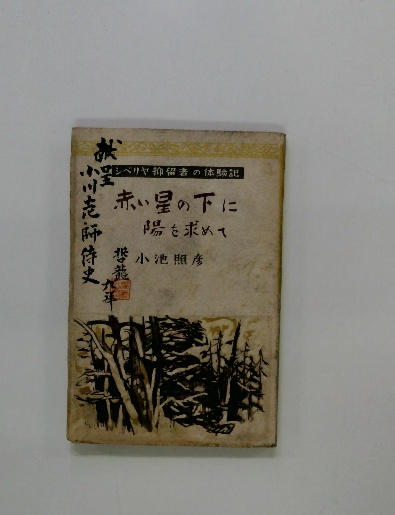 シベリヤ抑留者の体験記
赤い星の下に
陽を求めて
小池照彦
献呈
小川 師侍史